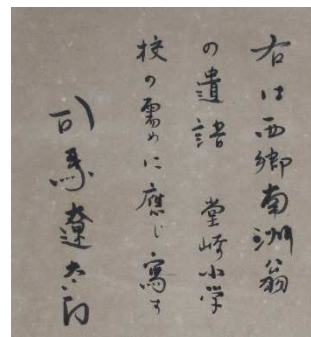 右は西郷南洲翁
の遺語 堂崎小学
校の需めに應じ寫す
司馬遼太郎